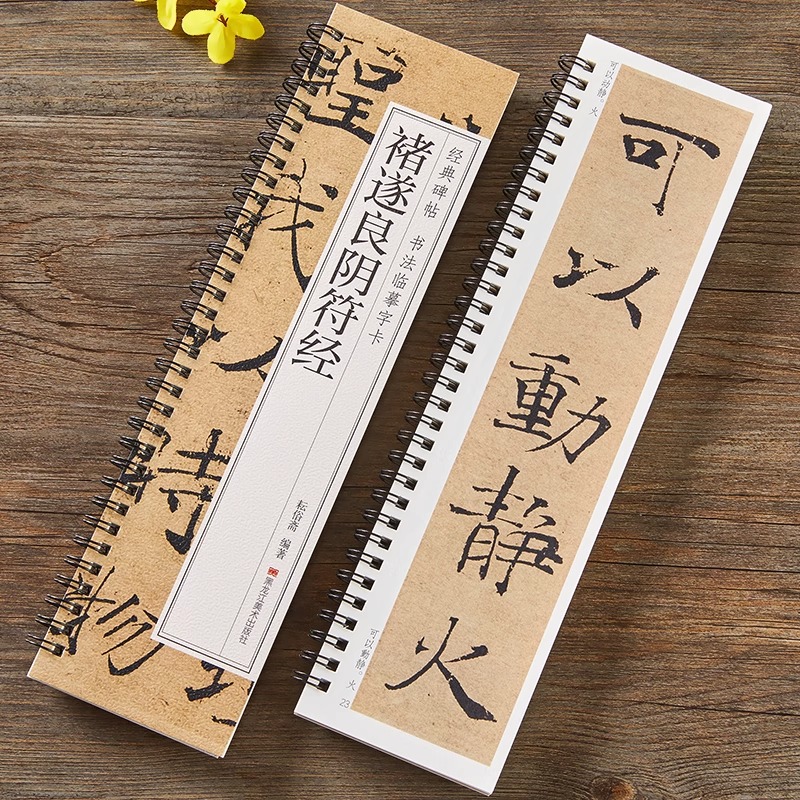 聖
我以時物
经典碑帖 书法临摹字卡
褚遂良阴符经
耘俗斋 编著
黑龙江美术出版社
可以动静。火
可以動靜火
可以動靜。火
23